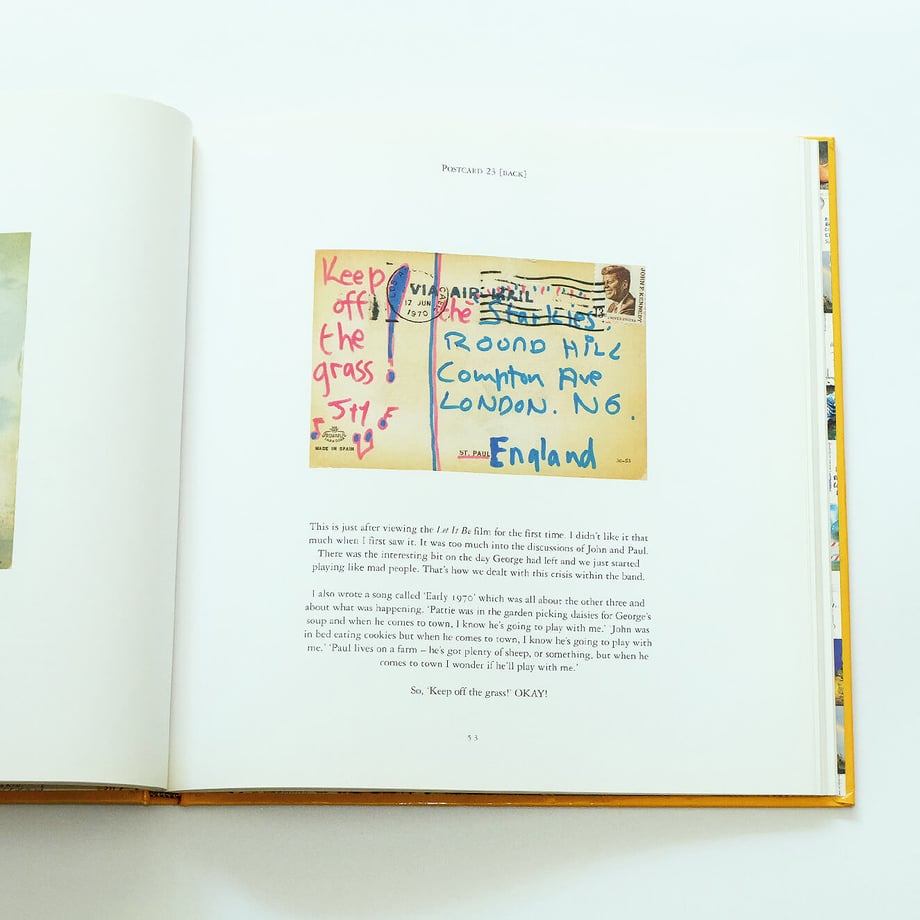 POSTCARD 23 [BACK]
Keep
off
the
grass!
J+Y
MADE IN SPAIN
VIA AIR MAIL
17 JUN
1970
JOHN F. KENNEDY
the Starkies.
ROUND HILL
Compton Ave
LONDON. N6.
England
ST. PAUL
This is just after viewing the Let It Be film for the first time. I didn't like it that
much when I first saw it. It was too much into the discussions of John and Paul.
There was the interesting bit on the day George had left and we just started
playing like mad people. That's how we dealt with this crisis within the band.
I also wrote a song called 'Early 1970' which was all about the other three and
about what was happening. 'Pattie was in the garden picking daisies for George's
soup and when he comes to town, I know he's going to play with me.' 'John was
in bed eating cookies but when he comes to town, I know he's going to play with
me.' 'Paul lives on a farm – he's got plenty of sheep, or something, but when he
comes to town I wonder if he'll play with me.'
So, 'Keep off the grass!' OKAY!
53